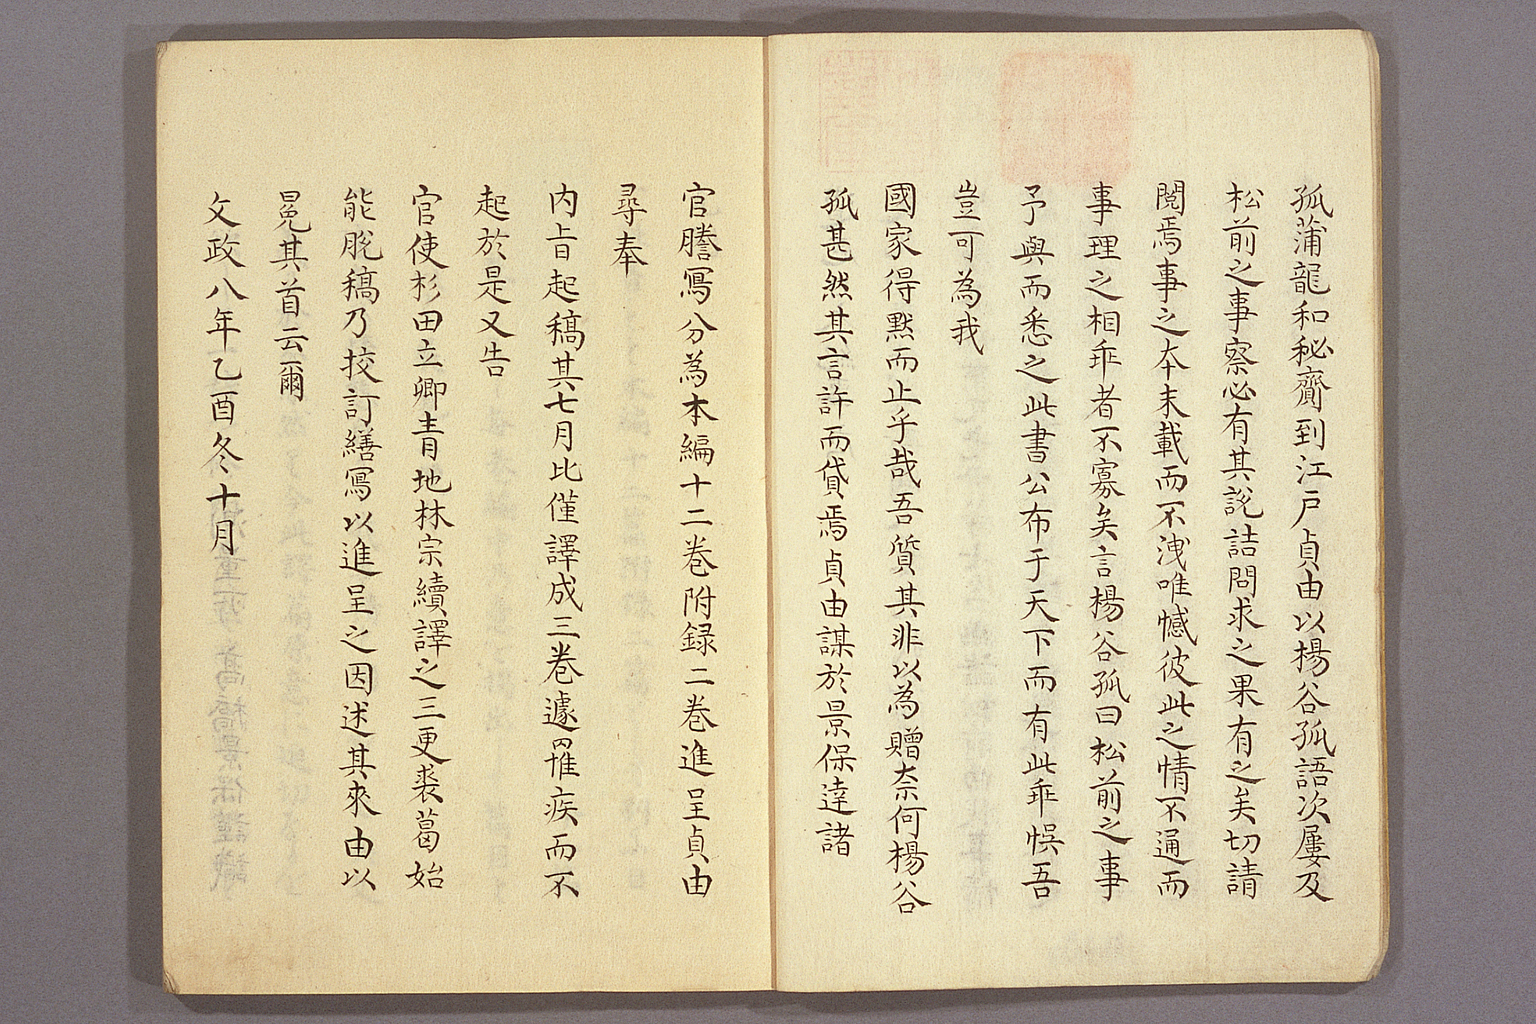 孤蒲龍和秘齋到江戸貞由以楊谷孤語次屢及
松前之事察必有其說詰問求之果有之矣切請
閱焉事之本末載而不洩唯憾彼此之情不通而
事理之相乖者不寡矣言楊谷孤曰松前之事
予與而悉之此書公布于天下而有此乖悞吾
豈可為我
國家得默而止乎哉吾質其非以為贈奈何楊谷
孤甚然其言許而貸焉貞由謀於景保達諸
官謄寫分為本編十二卷附録二卷進呈貞由
尋奉
内旨起稿其七月比僅譯成三卷遽罹疾而不
起於是又告
官使杉田立卿青地林宗續譯之三更裘葛始
能脫稿乃挍訂繕寫以進呈之因述其來由以
冕其首云爾
文政八年乙酉冬十月